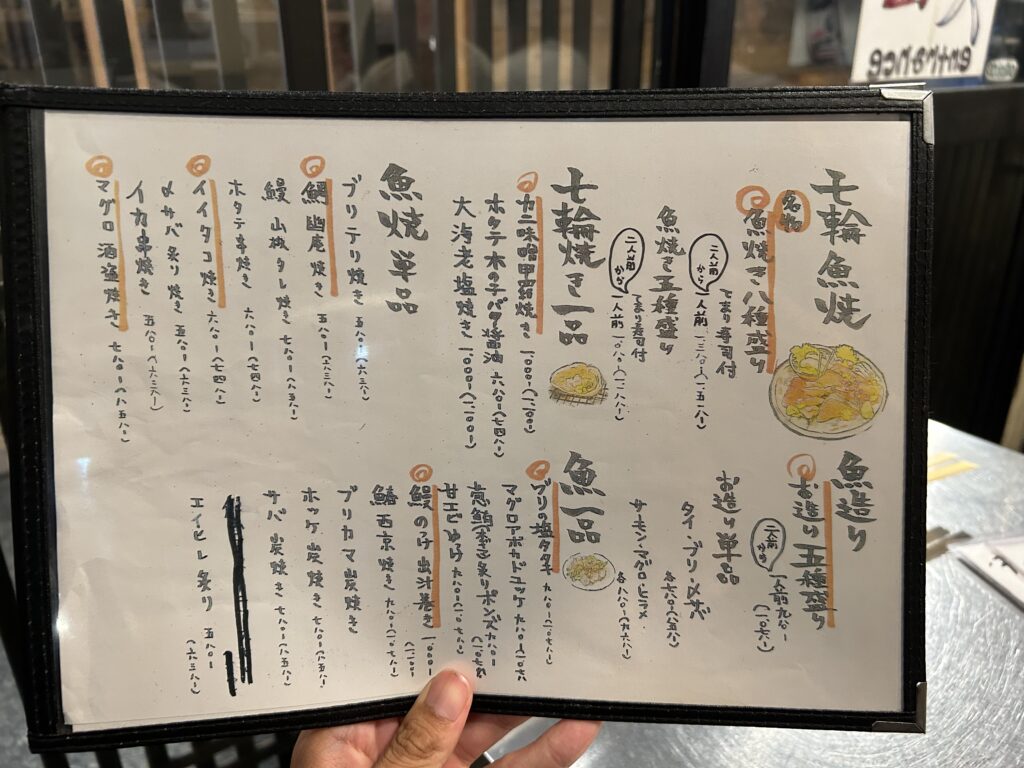 七輪魚焼
名物
魚焼き八種盛り
てまり寿司付
二人前から
一人前 一三八〇(一五一八)
魚焼き五種盛り
てまり寿司付
二人前から
一人前 一〇八〇(一一八八)
七輪焼き一品
カニ味噌甲羅焼き 一〇〇〇(一一〇〇)
ホタテ木の子バタ醤油 六八〇(七四八)
大海老塩焼き 一〇〇〇(一一〇〇)
魚焼単品
ブリテリ焼き 五八〇(六三八)
鯛幽庵焼き 五八〇(六三八)
鰻山椒タレ焼き 七八〇(八五八)
ホタテ串焼き 六八〇(七四八)
イイタコ焼き 六八〇(七四八)
〆サバ炙り焼き 五八〇(六三八)
イカ串焼き 五八〇(六三八)
マグロ酒盗焼き 七八〇(八五八)
魚造り
お造り五種盛り
二人前から
一人前九八〇
お造り単品
タイ・ブリ・〆サバ
サーモン・マグロ・ヒラメ
魚一品
ブリの塩タタキ
マグロアボカドユッケ
甘エビゆっけ
鰻のっけ出汁巻き 一〇〇〇
(一一〇〇)
鰆西京焼き 九八〇(一〇七八)
ブリカマ炭焼き
ホッケ炭焼き 七八〇(八五八)
サバ炭焼き 七八〇(八五八)
エイヒレ炙り 五八〇
(六三八)
entrance